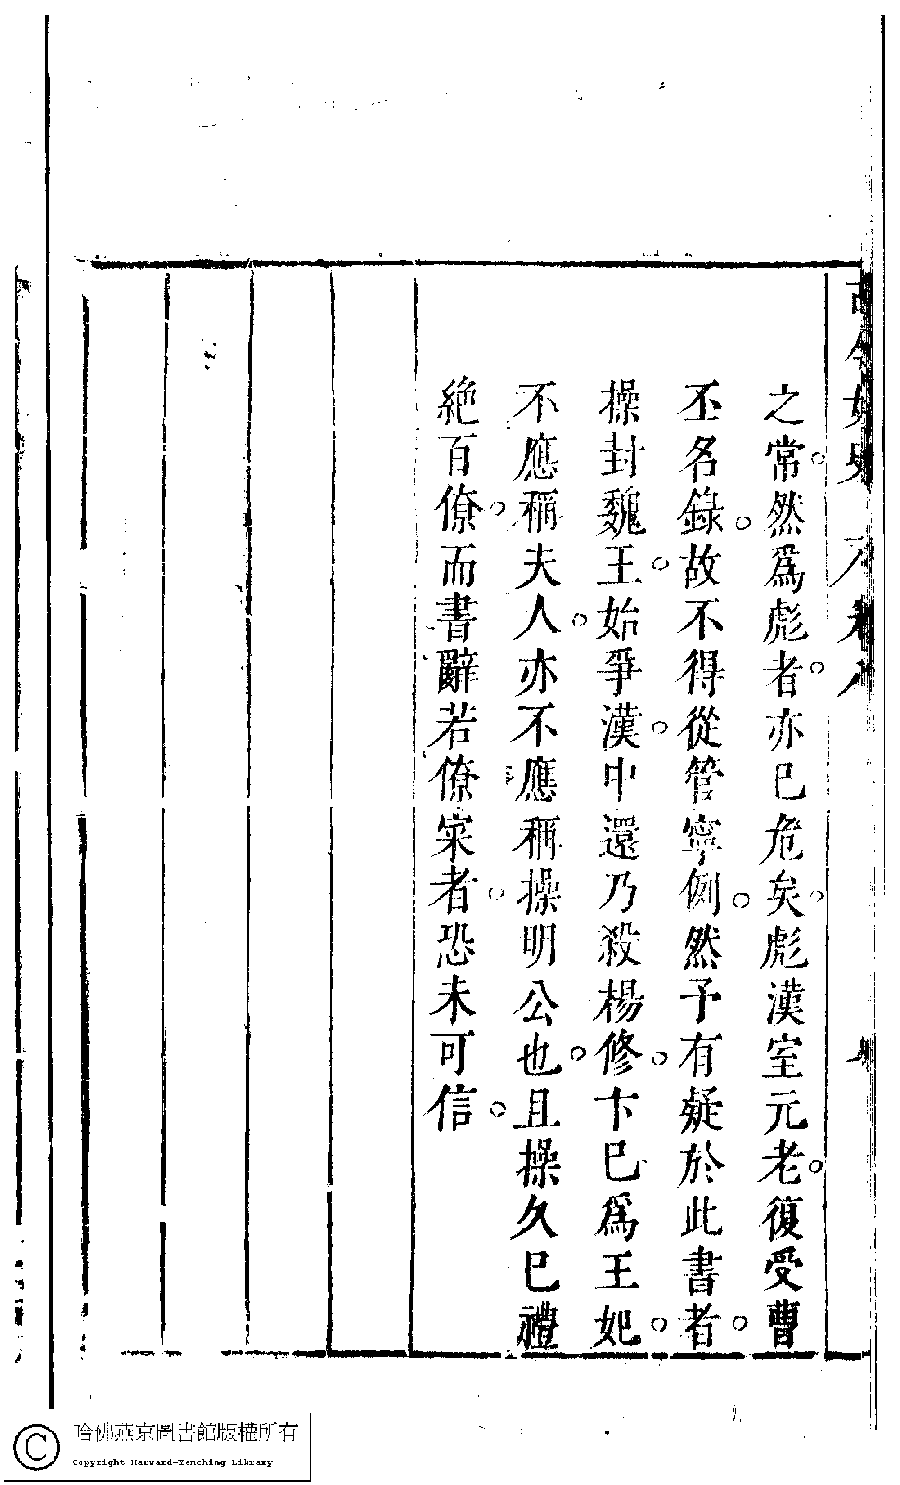 之常然爲彪者亦已危矣彪漢室元老復受曹
丕名錄故不得從管寧例然予有疑於此書者
操封魏王始爭漢中還乃殺楊修卞已爲王妃
不應稱夫人亦不應稱操明公也且操久已禮
絶百僚而書辭若僚寀者恐未可信
哈佛燕京圖書館版權所有
Copyright Harvard-Yenching Library